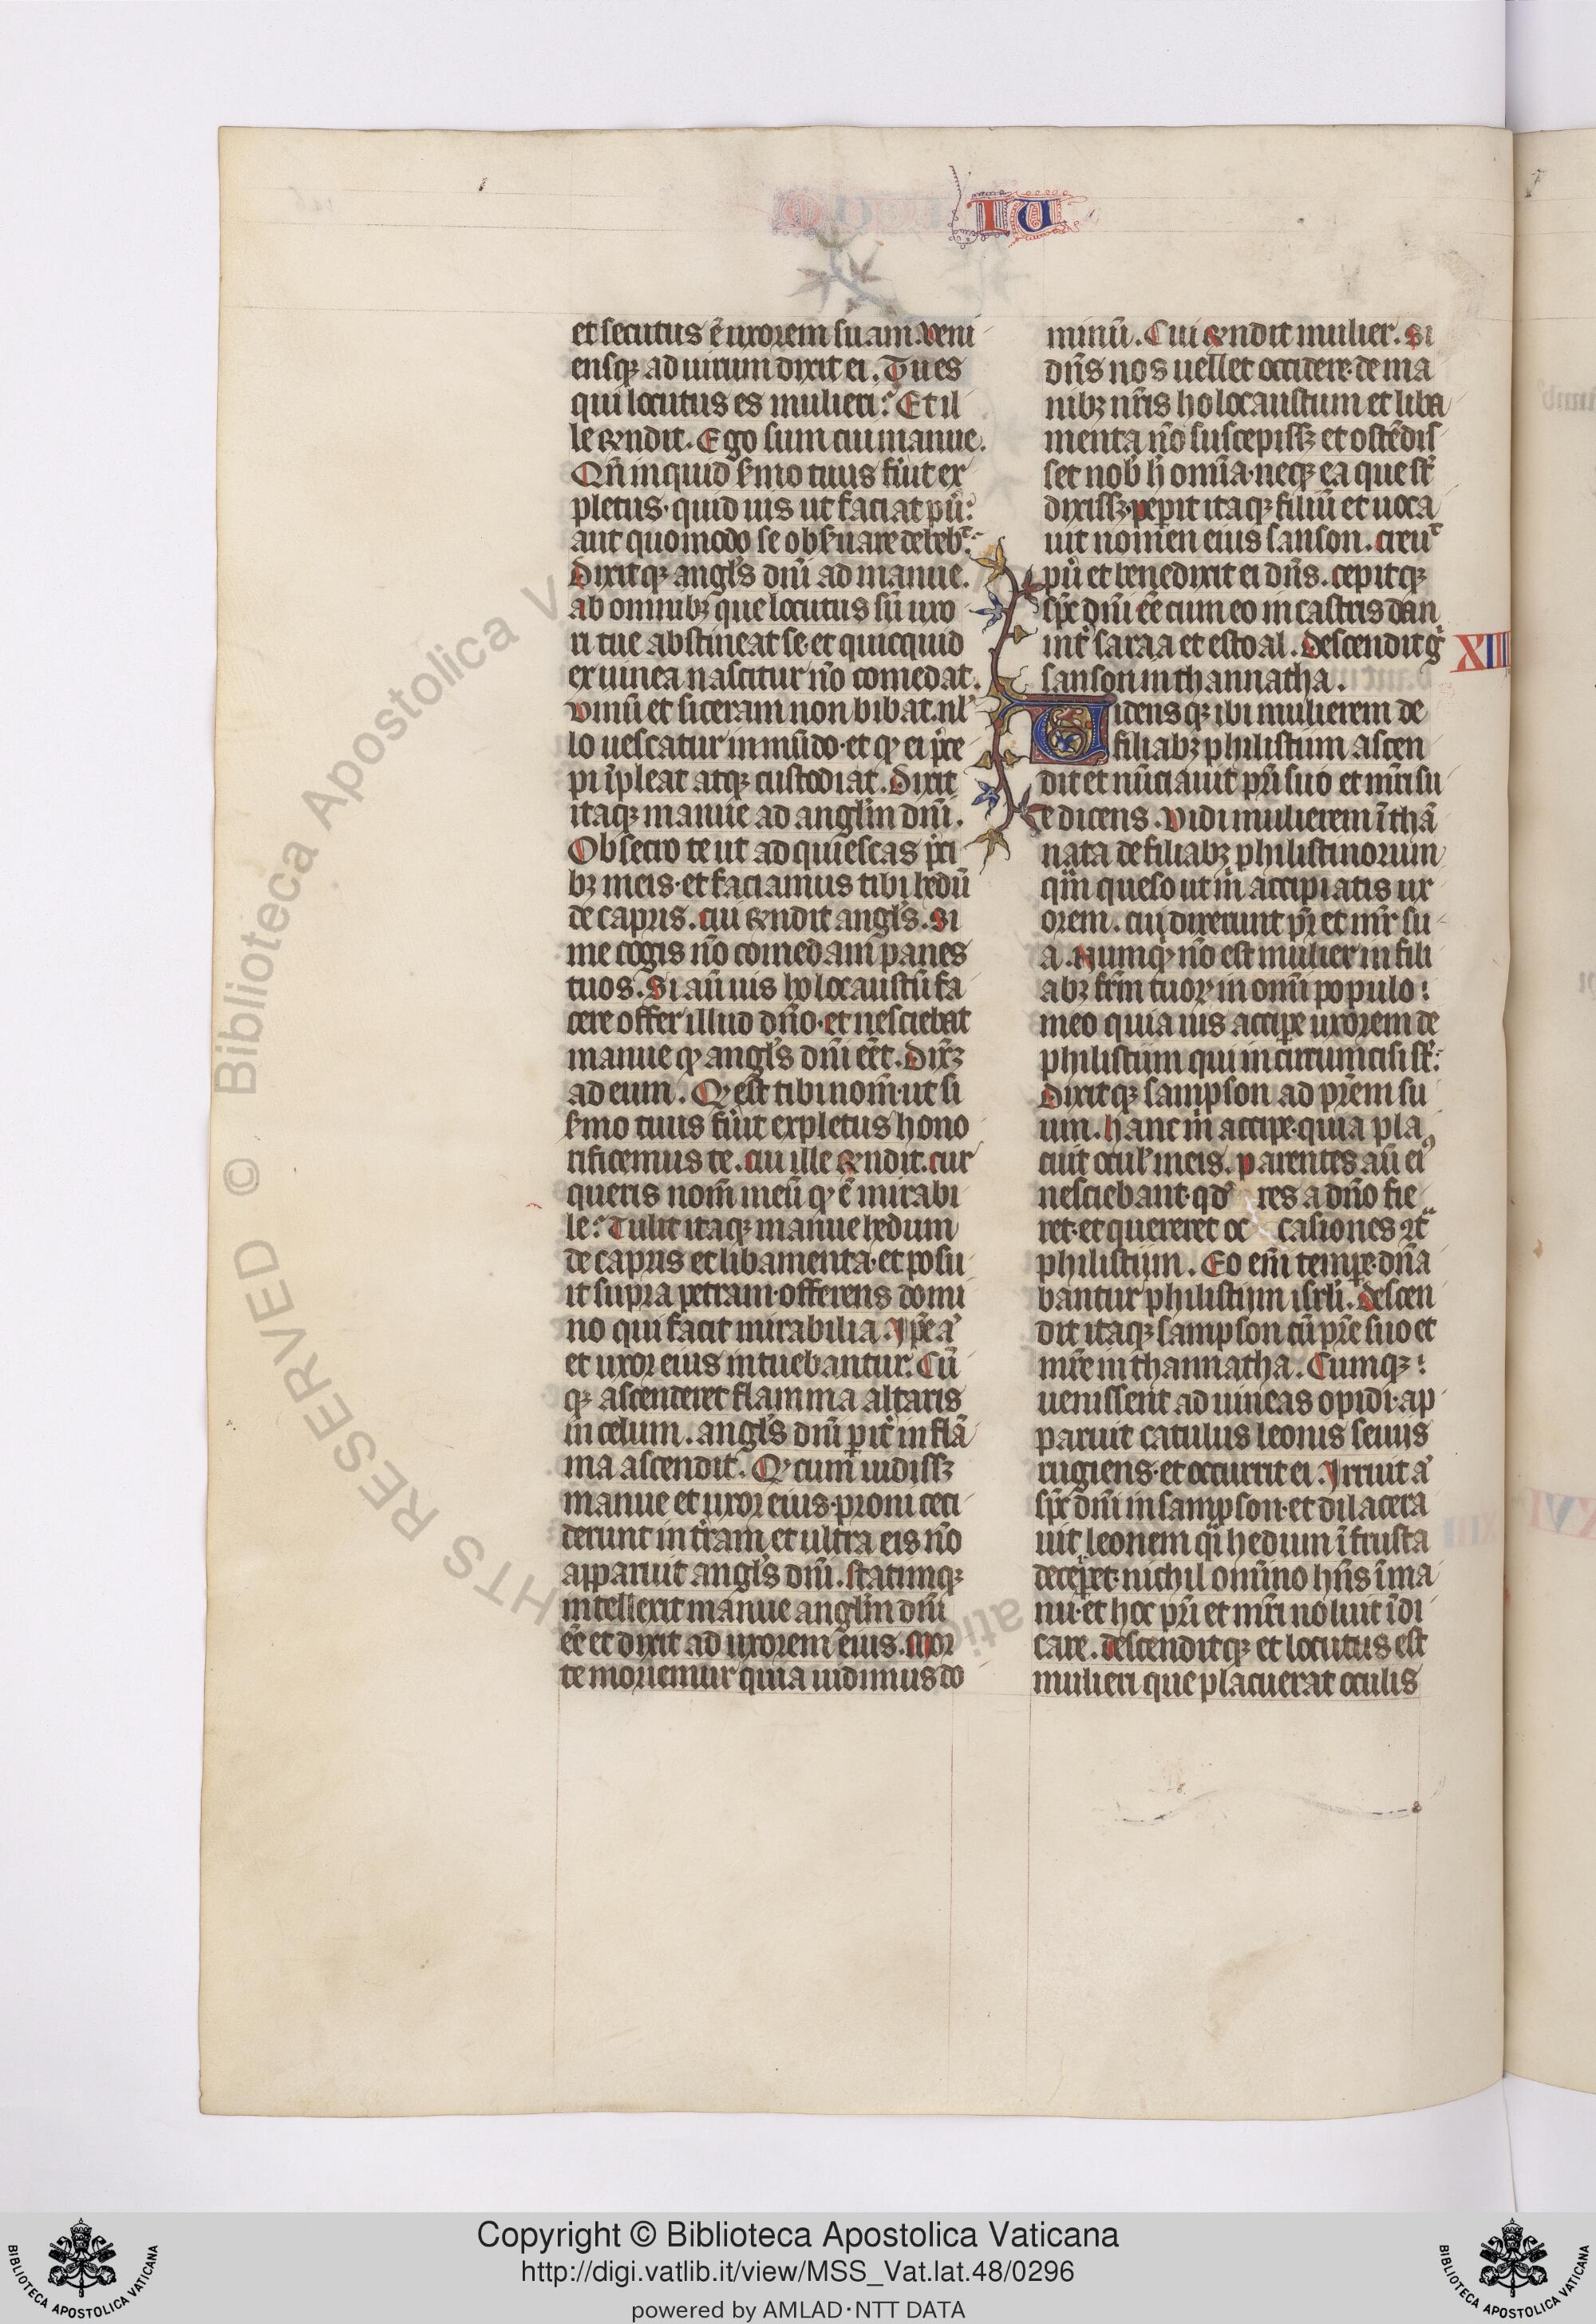 IU
et secutus ē uxorem suam. Veni
ensqꝫ ad uirum dixit ei. Tu es
qui locutus es mulieri? Et il
le rñdit. Ego sum cui manue.
Qñ inquid sermo tuus fu̾it ex
pletus· quid uis ut faciat pu̾?
aut quomodo se obs̾uare debebᵗ?
Dixitqꝫ angl̾s dñi ad manue.
ab omnibꝫ que locutus sū uxo
ri tue abstineat se· et quicquid
ex uinea nascitur nō comedat.
vinū et siceram non bibat. nl̾
lo uescatur inmūdo· et qͥ ei p̾ce
pi īpleat atqꝫ custodiat. Dixit
itaqꝫ manue ad angl̄m dñi.
Obsecro te ut adquiescas p̾ci
bꝫ meis· et faciamus tibi hedū
de capris. cui rñdit angl̾s. Si
me cogis nō comedam panes
tuos. Si aū uis holocaustū fa
cere offer illud dño· et nesciebat
manue qꝫ angl̾s dñi eēt. Dixꝫ
ad eum. Qꝫ est tibi nom̄· ut si
s̾mo tuus fu̾it expletus hono
rificemus te. cui ille rñdit. cur
queris nom̄ meū qꝫ ē mirabi
le? Tulit itaqꝫ manue hedum
de capris et libamenta· et posu
it supra petram· offerens domi
no qui facit mirabilia. Ip̄e a̾
et uxor eius intuebantur. Cū
qꝫ ascenderet flamma altaris
in celum. angl̾s dñi pit̾ in flā
ma ascendit. Qꝫ cum uidissꝫ
manue et uxor eius· proni ceci
derunt in t̾ram· et ultra eis nō
apparuit angl̾s dñi. Statimqꝫ
intellexit manue angl̄m dñi
eē et dixit ad uxorem eius. Mor
te moriemur quia uidimus do
minū. Cui rñdit mulier. Si
dñs nos uellet occidere· de ma
nibꝫ nr̄is holocaustum et liba
menta nō suscepissꝫ et ostēdis
set nob̾ h̾ omīa· neqꝫ ea que st̄
dixissꝫ· peperit itaqꝫ filiū et uoca
uit nomen eius sanson. creuᵗ
pu̾ et benedixit ei dñs. cepitqꝫ
sp̄c dñi eē cum eo in castris dan
int̾ saraa et estoal. Descendit gͥ
sanson in thannatha.
XIIII
Uidensqꝫ ibi mulierem de
filiabꝫ philistiim ascen
dit et nūciauit pr̄i suo et mr̄i su
e dicens. vidi mulierem ī thā
nata de filiabꝫ philistinorum
qm̄ queso ut m̾ accipiatis ux
orem. cui dixerunt pr̄ et mr̄ su
a. Numqͥ nō est mulier in fili
abꝫ fr̄m tuoꝝ in omīi populo
meo quia uis accipe uxorem de
philistiim qui incircumcisi st̄?
Dixitqꝫ sampson ad pr̄em su
um. hanc m̾ accipe· quia pla
cuit ocul̾ meis. parentes aū eiꝰ
nesciebant· qd̾ res a dño fie
ret· et quereret oc casiones 9t̾
philistiim. Eo em̄ tempe· dñā
bantur philistiim isrl̾i. Descen
dit itaqꝫ sampson cū pr̄e suo et
mr̄e in thannatha. Cumqꝫ
uenissent ad uineas opidi· ap
paruit catulus leonis seuus
rugiens· et occurrit ei. Irruit a̾
sp̄c dñi in sampson· et dilacera
uit leonem qͥ hedum ī frusta
decerperet· nichil omīno hñs ī ma
nu· et hoc pr̄i et mr̄i noluit īdi
care. descenditqꝫ et locutus est
mulieri que placuerat oculis
© Biblioteca Apostolica Vaticana
Copyright © Biblioteca Apostolica Vaticana
http://digi.vatlib.it/view/MSS_Vat.lat.48/0296
powered by AMLAD·NTT DATA
BIBLIOTECA APOSTOLICA VATICANA
BIBLIOTECA APOSTOLICA VATICANA